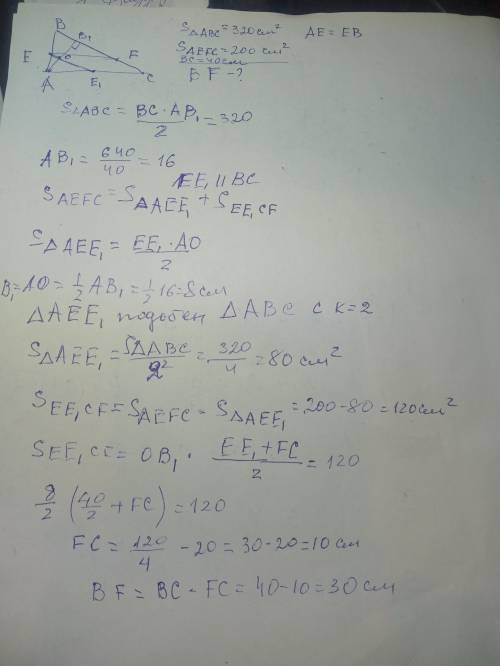 B
B₁
E
O
F
A
E₁
C
S△ABC = 320 cm² AE = EB
S AEFC = 200 cm²
BC = 40 см
BF - ?
S△ABC = BC · AB₁ / 2 = 320
AB₁ = 640 / 40 = 16
EE₁ || BC
S AEFC = S△AEE₁ + S EE₁CF
S△AEE₁ = EE₁ · AO / 2
B₁ = AO = 1/2 AB₁ = 1/2 16 = 8 см
△AEE₁ подобен △ABC с k = 2
S△AEE₁ = S△ABC / 2² = 320 / 4 = 80 см²
S EE₁CF = S AEFC - S△AEE₁ = 200 - 80 = 120 см²
S EE₁CF = OB₁ · EE₁ + FC / 2 = 120
8/2 (40/2 + FC) = 120
FC = 120/4 - 20 = 30 - 20 = 10 см
BF = BC - FC = 40 - 10 = 30 см